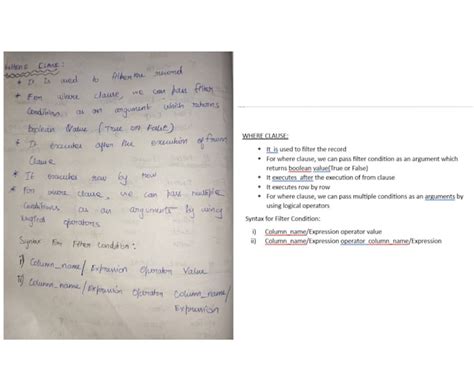 WHERE CLAUSE:
* It is used to filter the record
* For where clause, we can pass filter
conditions as an argument which returns
boolean value (True or False)
* It executes after the execution of from
clause
* It executes row by row
* For where clause, we can pass multiple
conditions as an arguments by using
logical operators
Syntax For Filter Condition:
i) Column_name/ Expression Operator Value
ii) Column_name/Expression Operator Column_name/
Expression
WHERE CLAUSE:
• It is used to filter the record
• For where clause, we can pass filter condition as an argument which
returns boolean value(True or False)
• It executes after the execution of from clause
• It executes row by row
• For where clause, we can pass multiple conditions as an arguments by
using logical operators
Syntax for Filter Condition:
i) Column_name/Expression operator value
ii) Column_name/Expression operator column_name/Expression